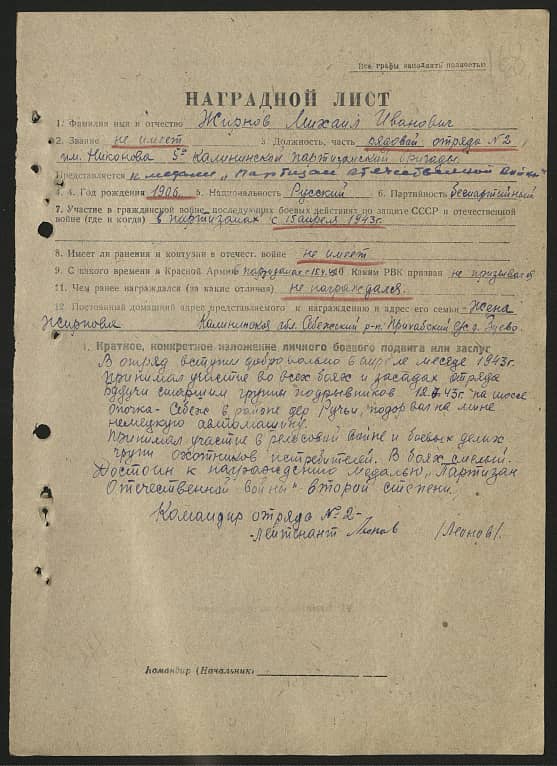 Все графы заполнять полностью
НАГРАДНОЙ ЛИСТ
1. Фамилия имя и отчество Жирнов Михаил Иванович
2. Звание не имеет 3. Должность, часть рядовой отряда №2
им. Никонова 5й Калининской партизанской бригады.
Представляется к медали „Партизан отечественной войны"
4. Год рождения 1906 5. Национальность Русский 6. Партийность беспартийный
7. Участие в гражданской войне, последующих боевых действиях по защите СССР и отечественной
войне (где и когда) в партизанах с 15 апрел 1943г.
8. Имеет ли ранения и контузии в отечест. войне не имеет
9. С какого времени в Красной Армии 10 Каким РВК призван не призывался
11. Чем ранее награждался (за какие отличия) не награждался.
12 Постоянный домашний адрес представляемого к награждению и адрес его семьи Жена
Жирнова Калининская обл. Себежский р-н
1. Краткое, конкретное изложение личного боевого подвига или заслуг
В отряд вступил добровольно в апреле месяце 1943г.
Принимал участие во всех боях и засадах отряда
будучи старшим группы подрывников 43г на шоссе
Опочка - Себеж в районе дер Ручьи, подорвал на мине
немецкую автомашину.
Принимал участие в рельсовой войне и боевых делах
групп охотников истребителей. В боях смелый.
Достоин к награждению медалью „Партизан
Отечественной войны" второй степени.
Командир отряда №2 -
- лейтенант Леонов /Леонов/.
Командир (Начальник)